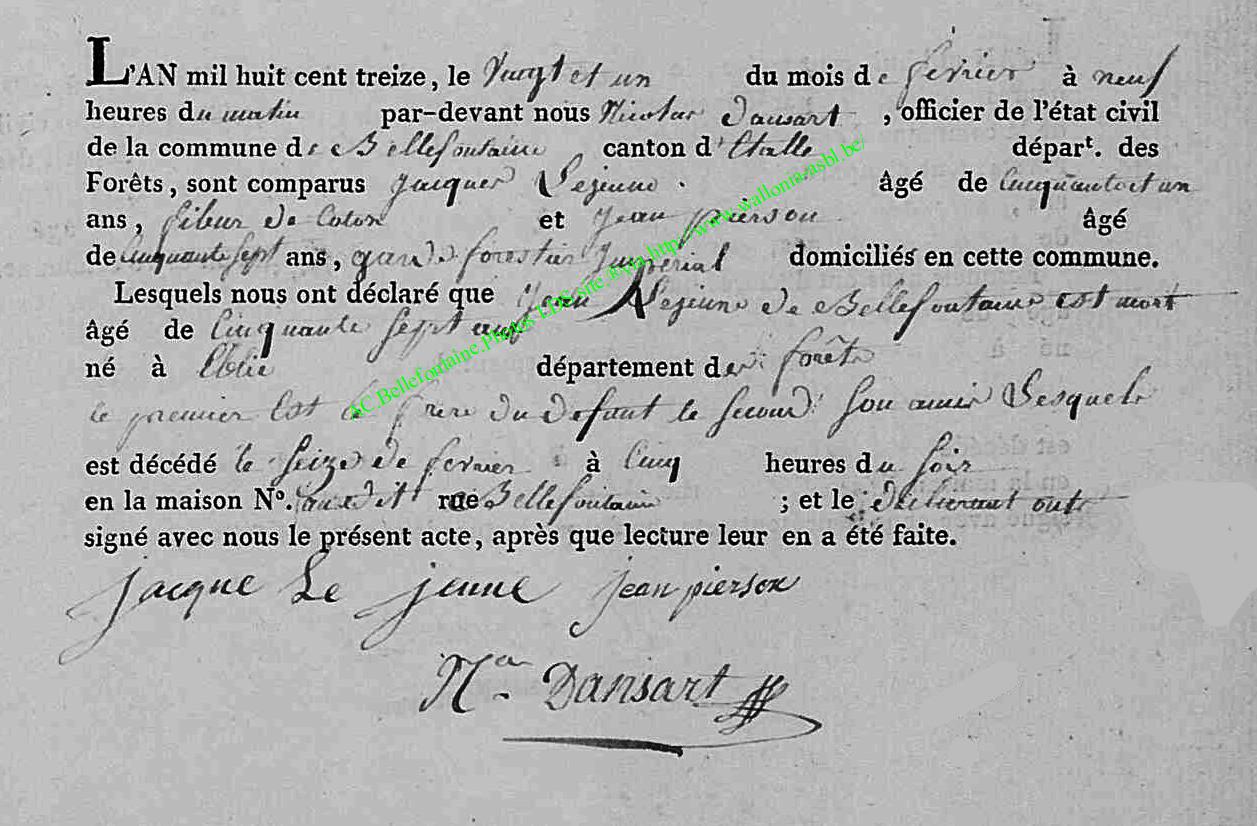 L'AN mil huit cent treize, le Vingt et un du mois de février à neuf
heures du matin par-devant nous Nicolas Dansart, officier de l'état civil
de la commune de Bellefontaine canton d'Etalle départ. des
Forêts, sont comparus Jacques Lejeune. âgé de Cinquante et un
ans, fileur de Coton et Jean pierson âgé
de Cinquante sept ans, garde forestier Imperial domiciliés en cette commune.
Lesquels nous ont déclaré que Jean Lejeune de Bellefontaine est mort
âgé de Cinquante sept ans
né à département des forêts
le premier Est le frere du defunt le second Son amis Lesquels
est décédé le Seize de fevrier à Cinq heures du soir
en la maison Nº. rue Bellefontaine ; et le ont
signé avec nous le présent acte, après que lecture leur en a été faite.
jacque Le jeune jean pierson
Nas Dansart
AC.Bellefontaine.Photos LDS site.®via http://www.wallonia-asbl.be/